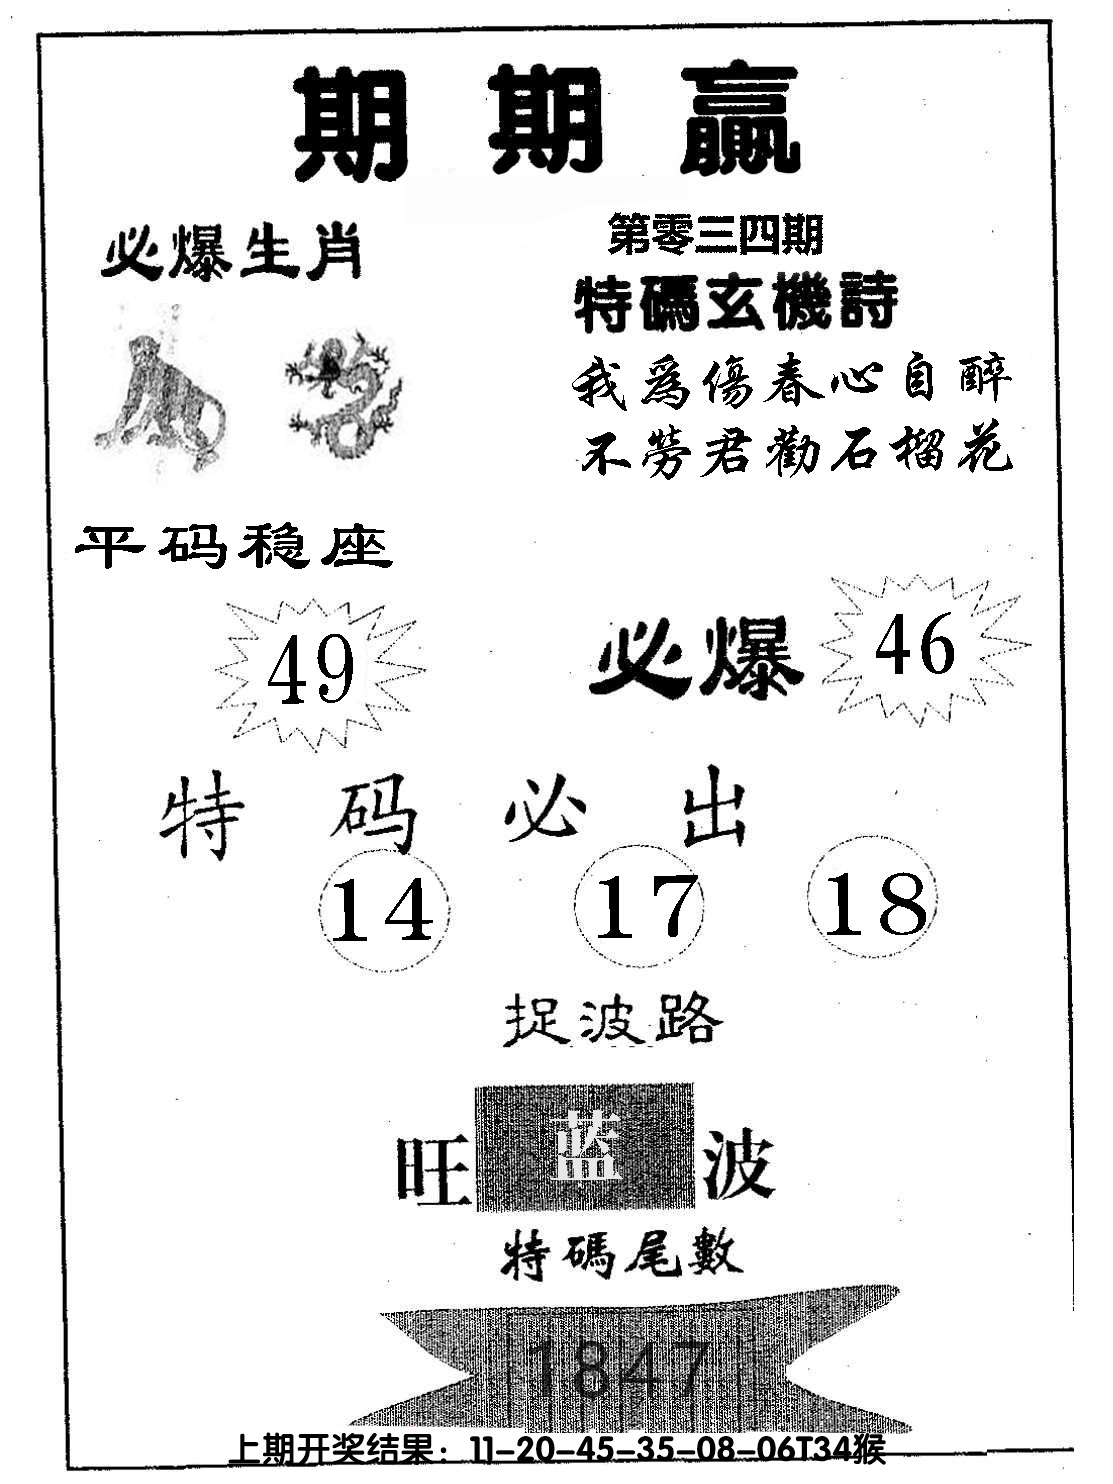 期期贏
第零三四期
必爆生肖
特碼玄機詩
我爲傷春心自醉
不勞君勸石榴花
平码稳座
49
必爆 46
特码必出
14 17 18
捉波路
旺 蓝 波
特碼尾數
1847
上期开奖结果：11-20-45-35-08-06T34猴